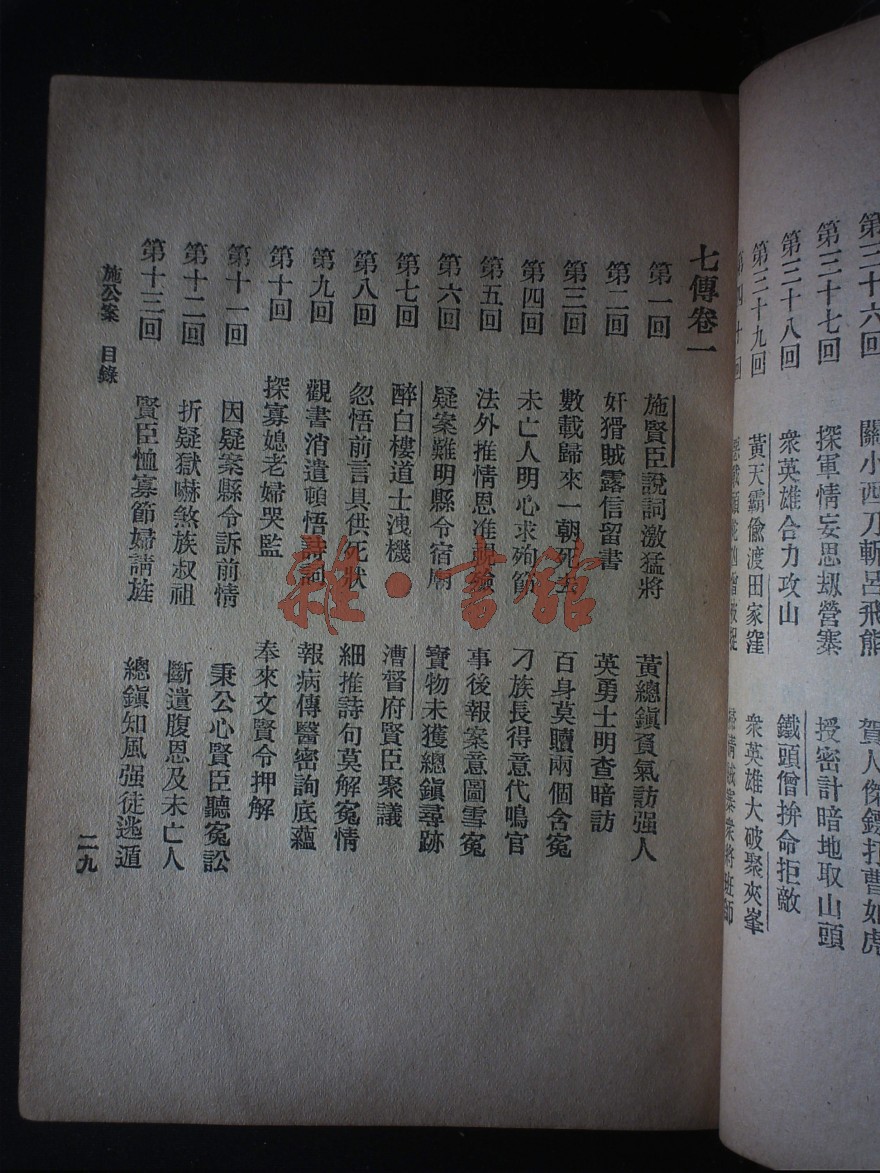 第三十六回 關小西刀斬呂飛熊 賀人傑鏢打曹如虎
第三十七回 探軍情妄思刼營寨 授密計暗地取山頭
第三十八回 衆英雄合力攻山 鐵頭僧拚命拒敵
第三十九回 黃天霸偸渡田家窪 衆英雄大破聚夾峯
第四十回
七傳卷一
第一回 施賢臣說詞激猛將 黃總鎭負氣訪强人
第二回 奸猾賊露信留書 英勇士明查暗訪
第三回 數載歸來一朝死去 百身莫贖兩個含寃
第四回 未亡人明心求殉節 刁族長得意代鳴官
第五回 法外推情恩准斬監 事後報案意圖雪寃
第六回 疑案難明縣令宿廟 寳物未獲總鎭尋跡
第七回 醉白樓道士洩機 漕督府賢臣聚議
第八回 忽悟前言具供死狀 細推詩句莫解寃情
第九回 觀書消遣頓悟詩詞 報病傳醫密詢底蘊
第十回 探寡媳老婦哭監 奉來文賢令押解
第十一回 因疑案縣令訴前情 秉公心賢臣聽寃訟
第十二回 折疑獄嚇煞族叔祖 斷遺腹恩及未亡人
第十三回 賢臣恤寡節婦請旌 總鎭知風强徒逃遁
施公案 目錄
二九
雜·書館